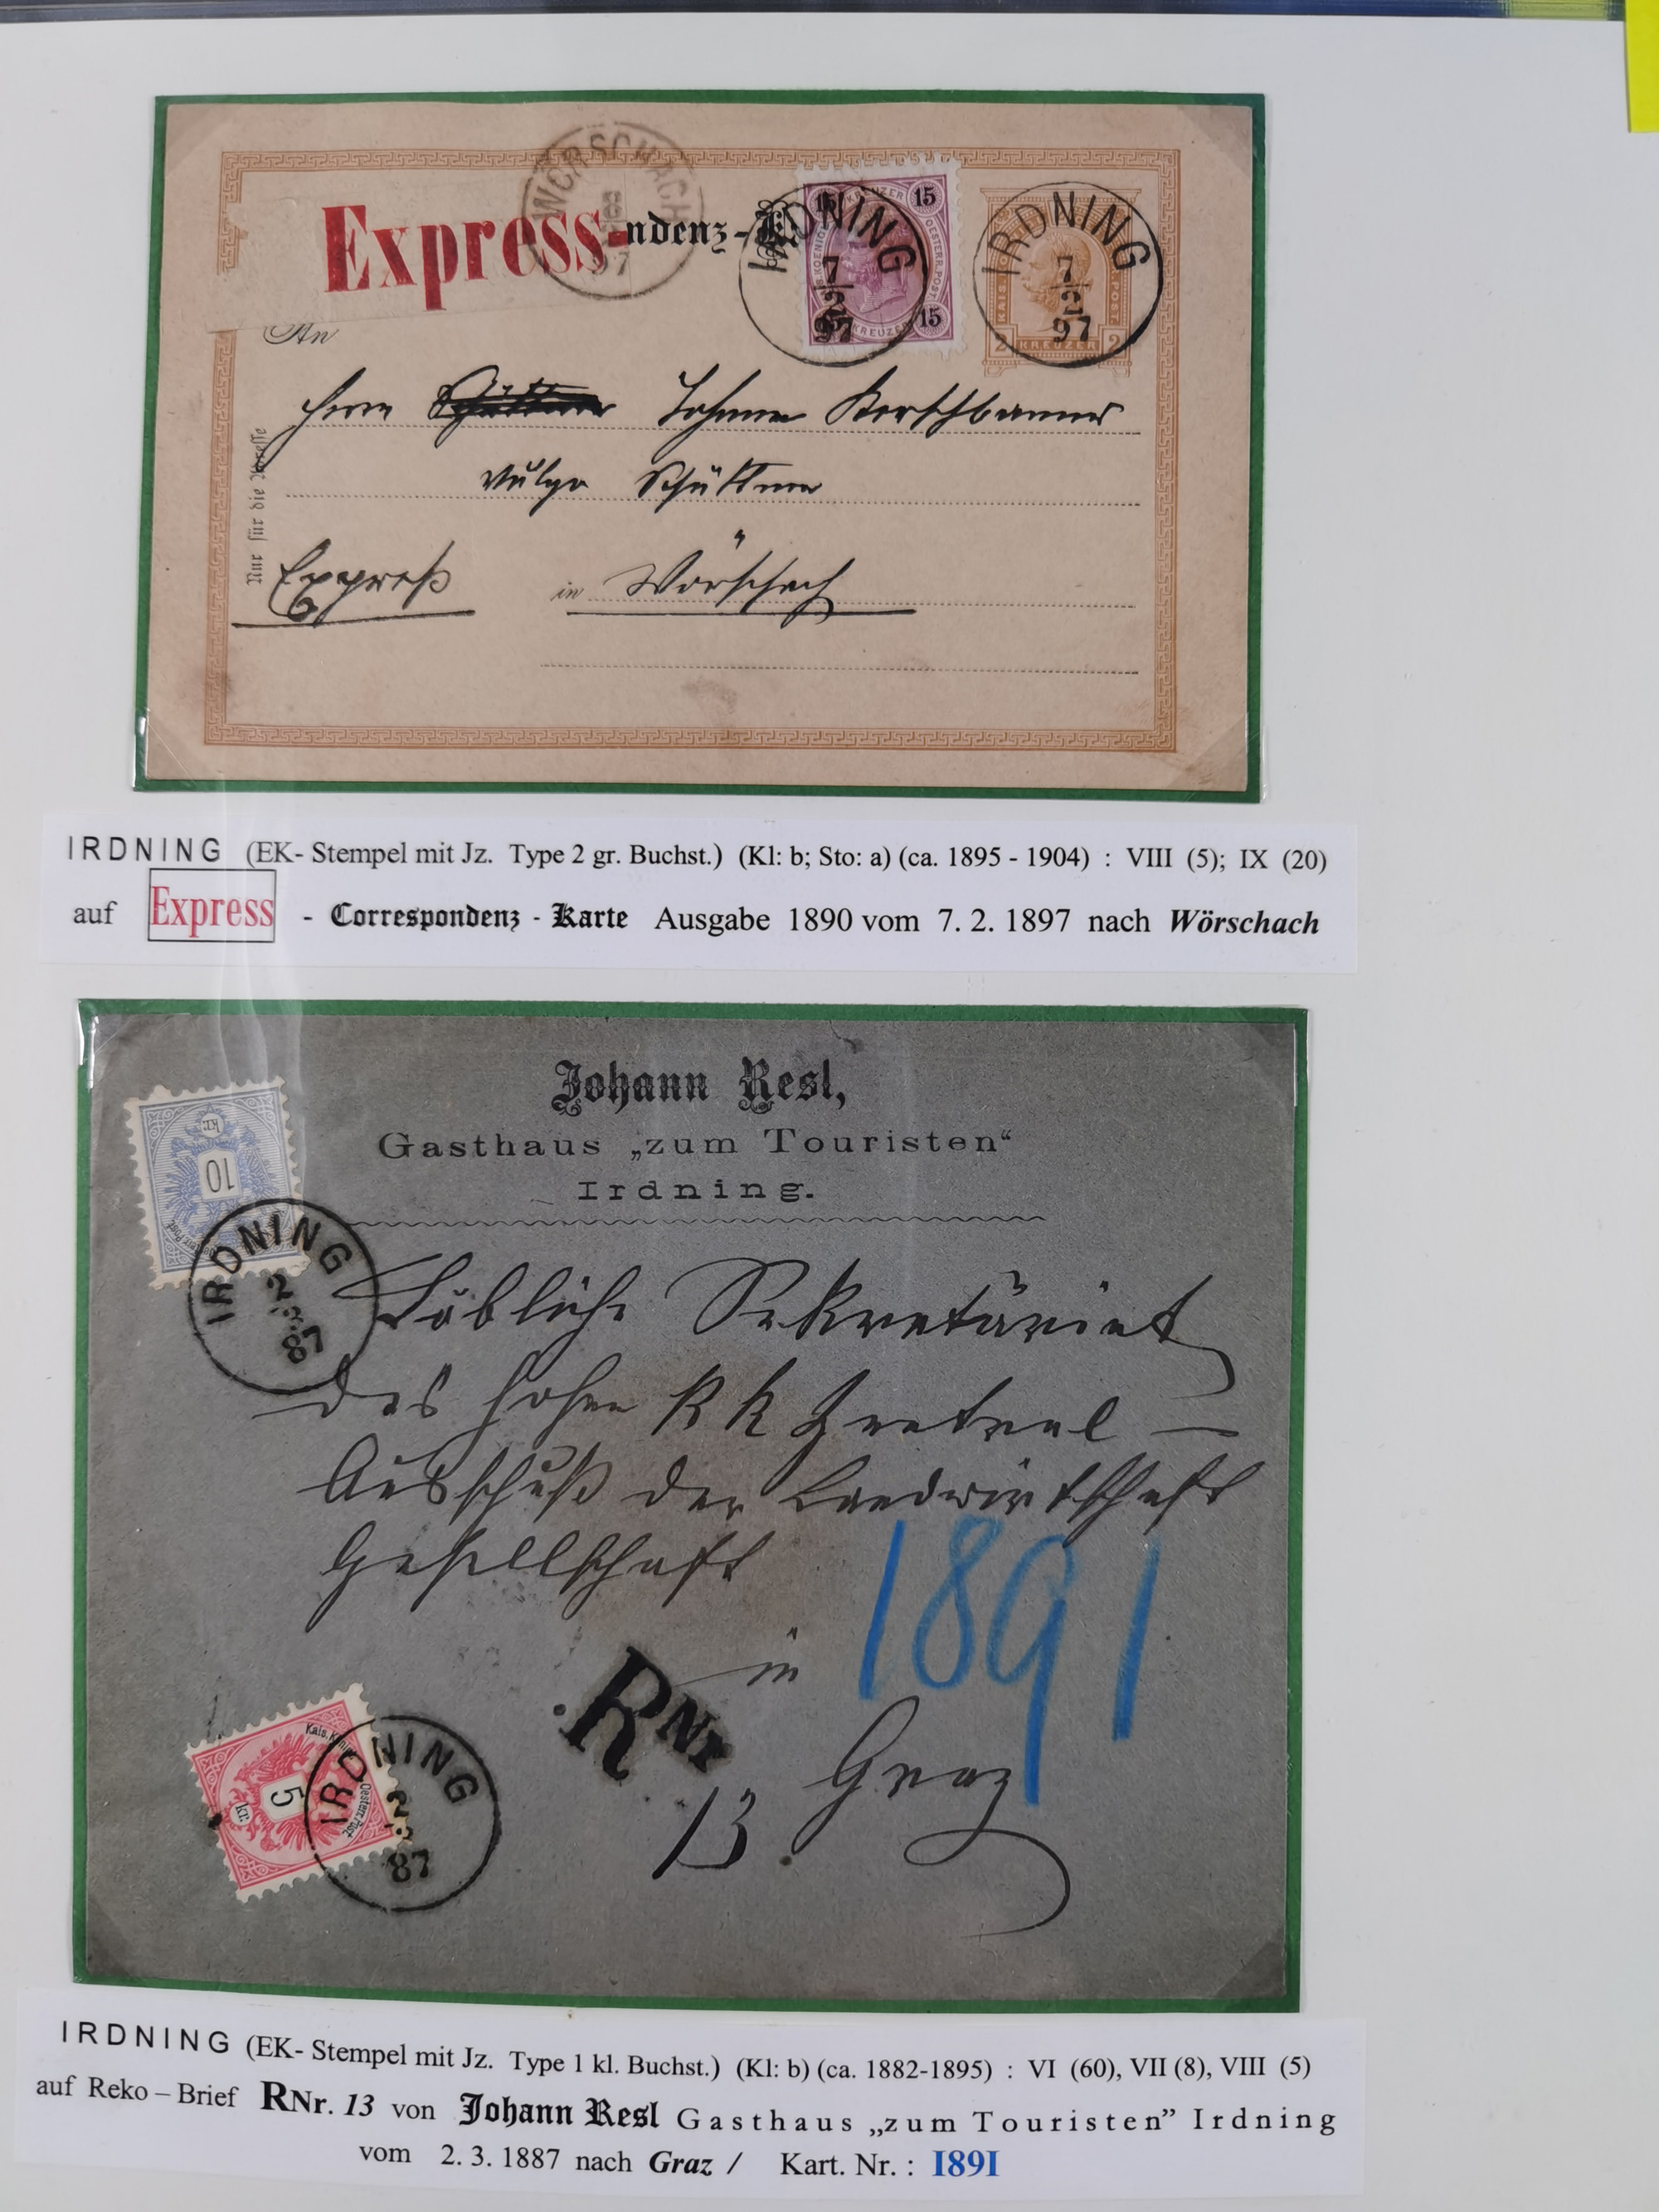 WÖRSCHACH
97
Express-ndenz-K
IRDNING
7/2
97
15 KREUZER 15
15
KREUZER
OESTERR. POST
IRDNING
7/2
97
KAIS.
POST
2 KREUZER 2
An
Herrn Johann Kerschbaumer
vulgo Schüttner
Expreß in Wörschach
Nur für die Adresse
IRDNING (EK- Stempel mit Jz. Type 2 gr. Buchst.) (Kl: b; Sto: a) (ca. 1895 - 1904) : VIII (5); IX (20)
auf Express - Correspondenz - Karte Ausgabe 1890 vom 7. 2. 1897 nach Wörschach
Johann Resl,
Gasthaus „zum Touristen“
Irdning.
kr.
10
IRDNING
2
3
87
Löbliche Sekretäriat
des hohen k k Zentral –
Ausschuß der Landwirthschaft
Gesellschaft
1891
in
Graz
RNr
13.
5
kr.
Oesterr. Post
IRDNING
2
3
87
IRDNING (EK- Stempel mit Jz. Type 1 kl. Buchst.) (Kl: b) (ca. 1882-1895) : VI (60), VII (8), VIII (5)
auf Reko – Brief RNr. 13 von Johann Resl Gasthaus „zum Touristen” Irdning
vom 2. 3. 1887 nach Graz / Kart. Nr. : 1891